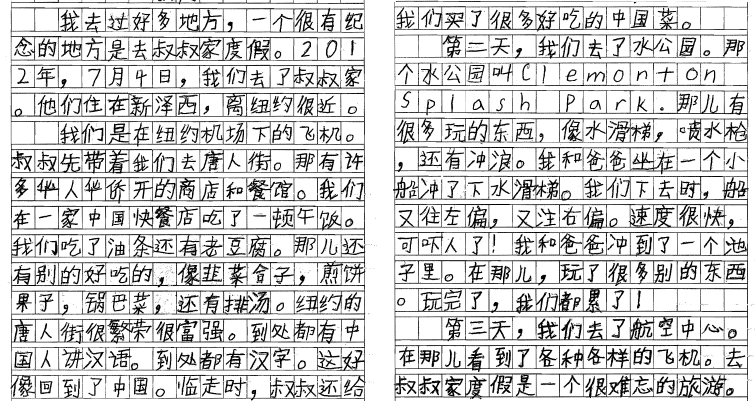 我去过好多地方，一个很有纪
念的地方是去叔叔家度假。201
2年，7月4日，我们去了叔叔家
。他们住在新泽西，离纽约很近。
我们是在纽约机场下的飞机。
叔叔先带着我们去唐人街。那有许
多华人华侨开的商店和餐馆。我们
在一家中国快餐店吃了一顿午饭。
我们吃了油条还有老豆腐。那儿还
有别的好吃的，像韭菜合子，煎饼
果子，锅巴菜，还有排汤。纽约的
唐人街很繁荣很富强。到处都有中
国人讲汉语。到处都有汉字。这好
像回到了中国。临走时，叔叔还给
我们买了很多好吃的中国菜。
第二天，我们去了水公园。那
个水公园叫Clemonton
Splash Park.那儿有
很多玩的东西，像水滑梯，喷水枪
，还有冲浪。我和爸爸坐在一个小
船冲了下水滑梯。我们下去时，船
又往左偏，又注右偏。速度很快，
可吓人了！我和爸爸冲到了一个池
子里。在那儿，玩了很多别的东西
。玩完了，我们都累了！
第三天，我们去了航空中心。
在那儿看到了各种各样的飞机。去
叔叔家度假是一个很难忘的旅游。